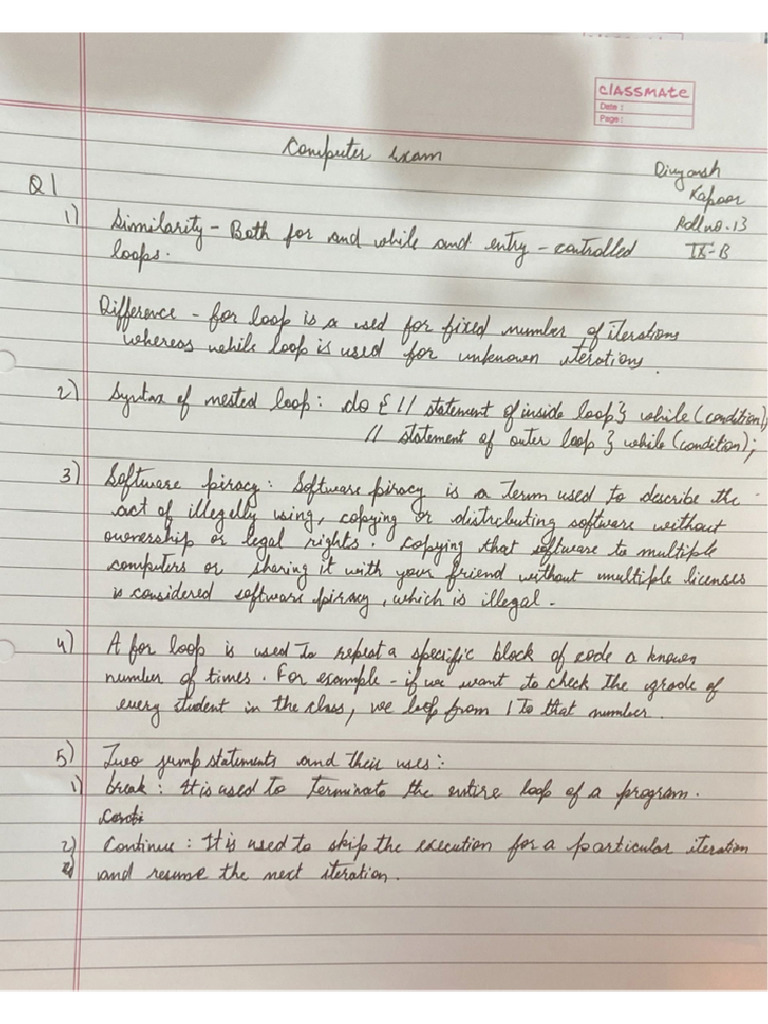 classmate
Date :
Page :
Computer exam
Divyansh
Kapoor
Roll no. 13
IX-B
Q1
1) Similarity - Both for and while and entry - controlled
loops.
Difference - for loop is a used for fixed number of iterations
whereas while loop is used for unknown iterations.
2) Syntax of nested loop : do { // statement of inside loop } while (condition);
// statement of outer loop } while (condition);
3) Software piracy : Software piracy is a term used to describe the
act of illegelly using, copying or distrcbuting software without
ownership or legal rights. Copying that software to multiple
computers or sharing it with your friend without multiple licenses
is considered software piracy, which is illegal.
4) A for loop is used to repeat a specific block of code a known
number of times. For example - if we want to check the grade of
every student in the class, we loop from 1 to that number.
5) Two jump statements and their uses :
1) break : It is used to terminate the entire loop of a program.
2) Continue : It is used to skip the execution for a particular iteration
and resume the next iteration.